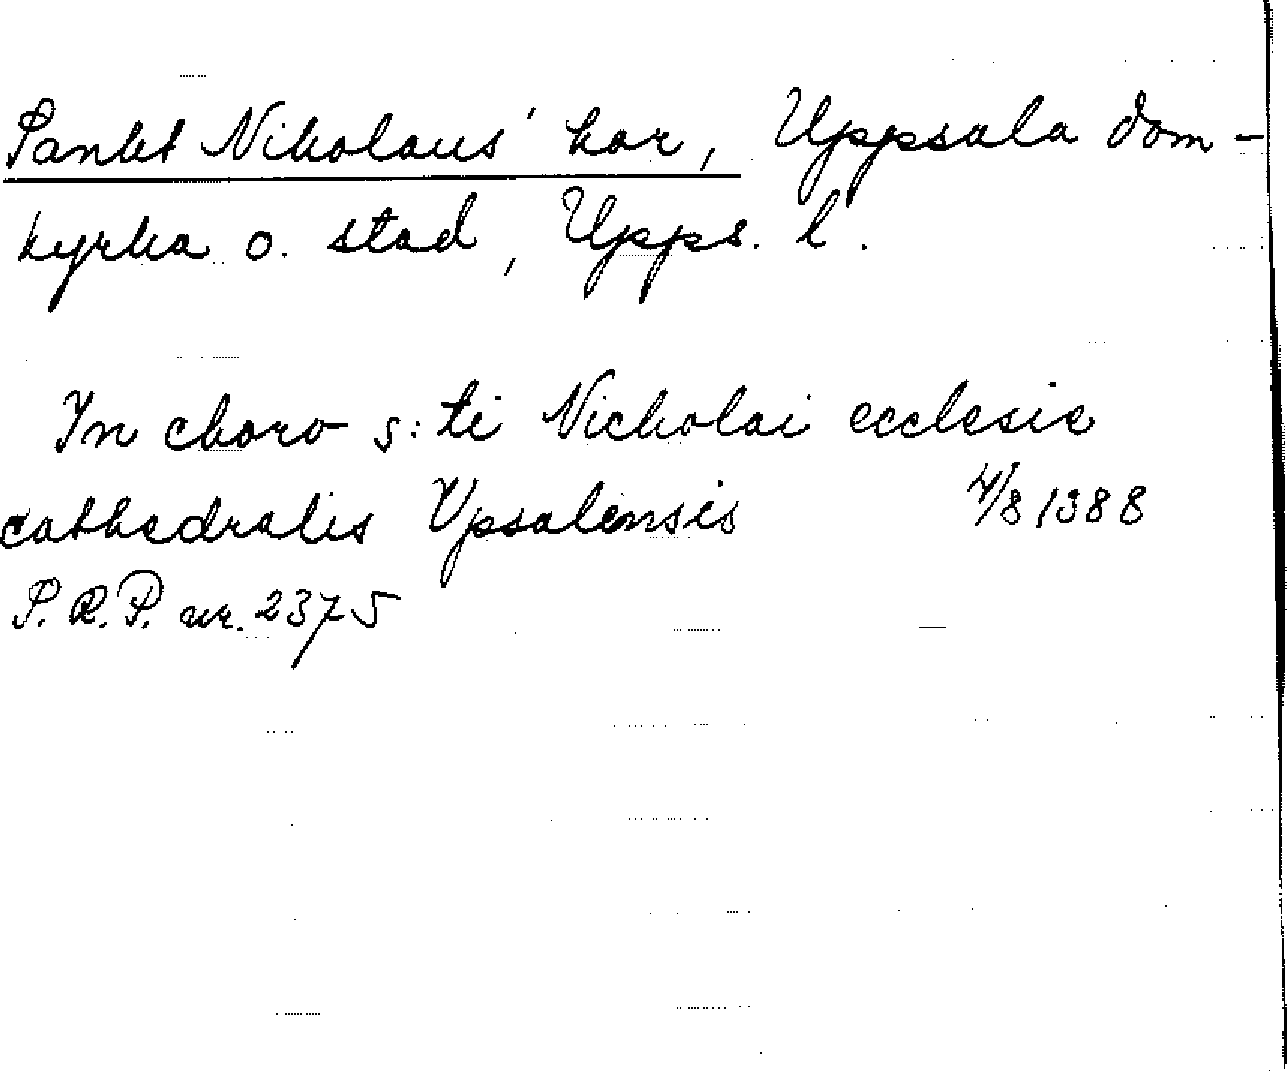 Sankt Nikolaus' kor, Uppsala dom-
kyrka o. stad, Upps. l.
In choro s:ti Nicholai ecclesie
cathedralis Vpsalensis 4/8 1388
S.R.P. nr. 2375